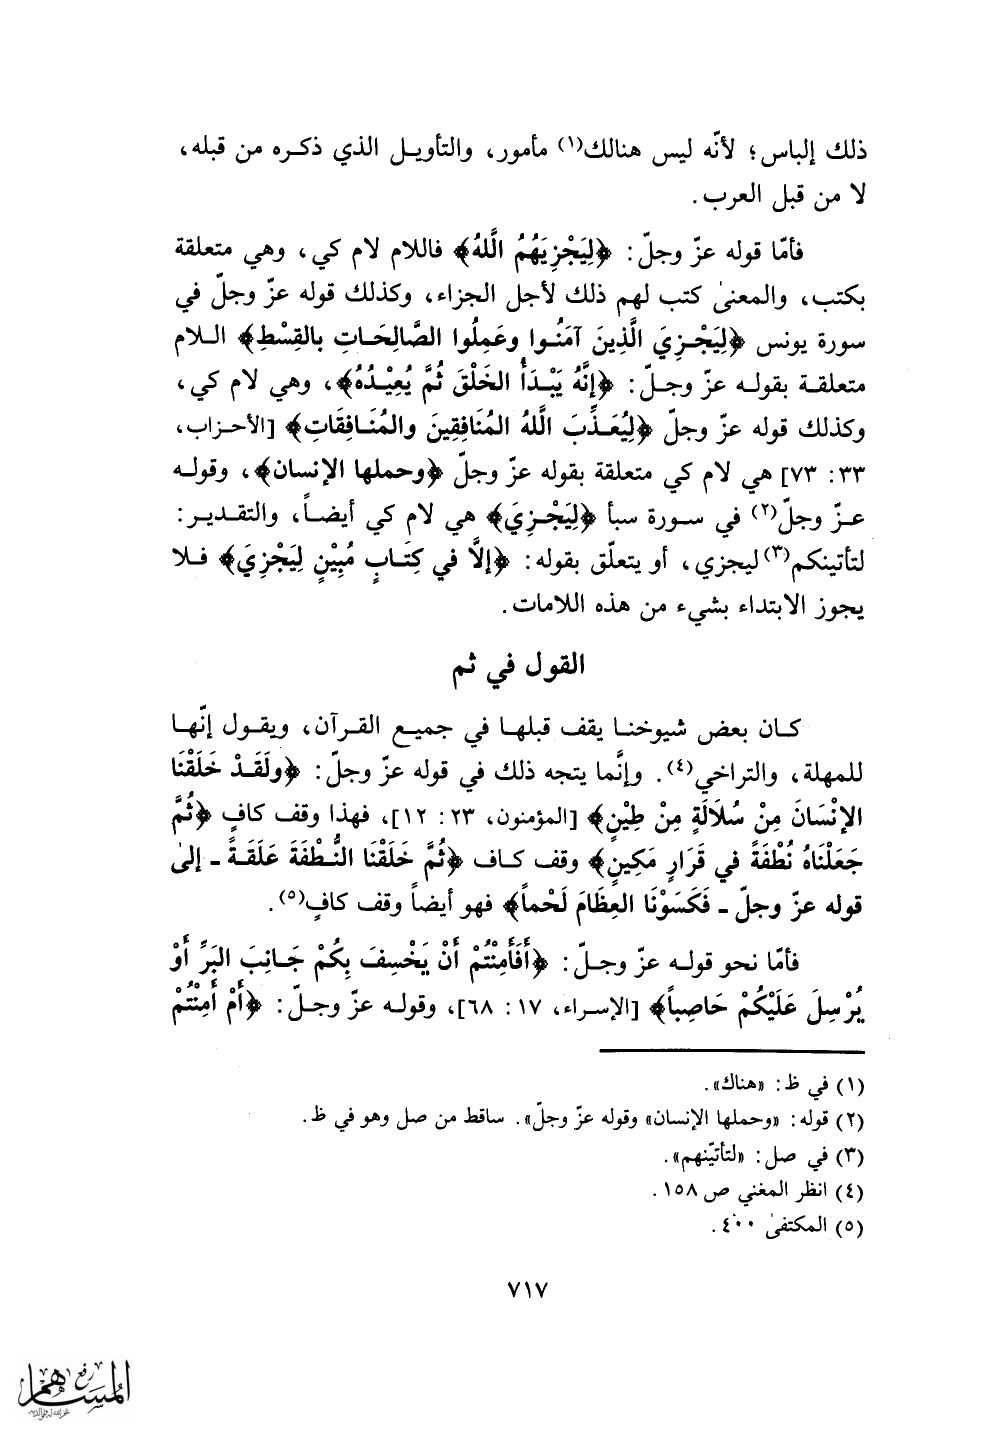 ذلك إلباس؛ لأنّه ليس هنالك(١) مأمور، والتأويـل الذي ذكـره من قبله،
لا من قبل العرب.
فأمّا قوله عزّ وجلّ: ﴿لِيَجْزِيَهُمُ اللَّهُ﴾ فاللام لام كي، وهي متعلقة
بكتب، والمعنىٰ كتب لهم ذلك لأجل الجزاء، وكذلك قوله عزّ وجلّ في
سورة يونس ﴿لِيَجْـزِيَ الَّذِينَ آمَنُـوا وعَمِلُوا الصَّالِحَـاتِ بالقِسْطِ﴾ الـلام
متعلقـة بقولـه عزّ وجـلّ: ﴿إنَّهُ يَبْـدَأُ الخَلْقَ ثُمَّ يُعِيْـدُهُ﴾، وهي لام كي،
وكذلك قوله عزّ وجلّ ﴿لِيُعَـذِّبَ اللَّهُ المُنَافِقِينَ والمُنَـافِقَاتِ﴾ [الأحـزاب،
٣٣: ٧٣] هي لام كي متعلقة بقوله عزّ وجلّ ﴿وحملها الإنسان﴾، وقولـه
عـزّ وجلّ(٢) في سـورة سبأ ﴿لِيَجْـزِيَ﴾ هي لام كي أيضـاً، والتقـدير:
لتأتينكم(٣) ليجزي، أو يتعلّق بقوله: ﴿إلَّا في كِتَـابٍ مُبِيْنٍ لِيَجْزِيَ﴾ فـلا
يجوز الابتداء بشيء من هذه اللامات.
القول في ثم
كـان بعض شيوخنـا يقف قبلهـا في جميـع القـرآن، ويقـول إنّهـا
للمهلة، والتراخي(٤). وإنَّما يتجه ذلك في قوله عزّ وجلّ: ﴿ولَقَـدْ خَلَقْنَا
الإنْسَانَ مِنْ سُلَالَةٍ مِنْ طِيْنٍ﴾ [المؤمنون، ٢٣: ١٢]، فهذا وقف كافٍ ﴿ثُمَّ
جَعَلْنَاهُ نُطْفَةً في قَرَارٍ مَكِينٍ﴾ وقف كـاف ﴿ثُمَّ خَلَقْنَا النُّـطْفَةَ عَلَقَـةً ـ إلىٰ
قوله عزّ وجلّ ـ فَكَسَوْنَا العِظَامَ لَحْماً﴾ فهو أيضاً وقف كافٍ(٥).
فأمّا نحو قولـه عزّ وجـلّ: ﴿أَفَأَمِنْتُمْ أَنْ يَخْسِفَ بِكُمْ جَـانِبَ البَرِّ أَوْ
يُرْسِلَ عَلَيْكُمْ حَاصِباً﴾ [الإسـراء، ١٧: ٦٨]، وقولـه عزّ وجـلّ: ﴿أَمْ أَمِنْتُمْ
(١) في ظ: «هناك».
(٢) قوله: «وحملها الإنسان» وقوله عزّ وجلّ». ساقط من صل وهو في ظ.
(٣) في صل: «لتأتيّنهم».
(٤) انظر المغني ص ١٥٨.
(٥) المكتفىٰ ٤٠٠.
٧١٧